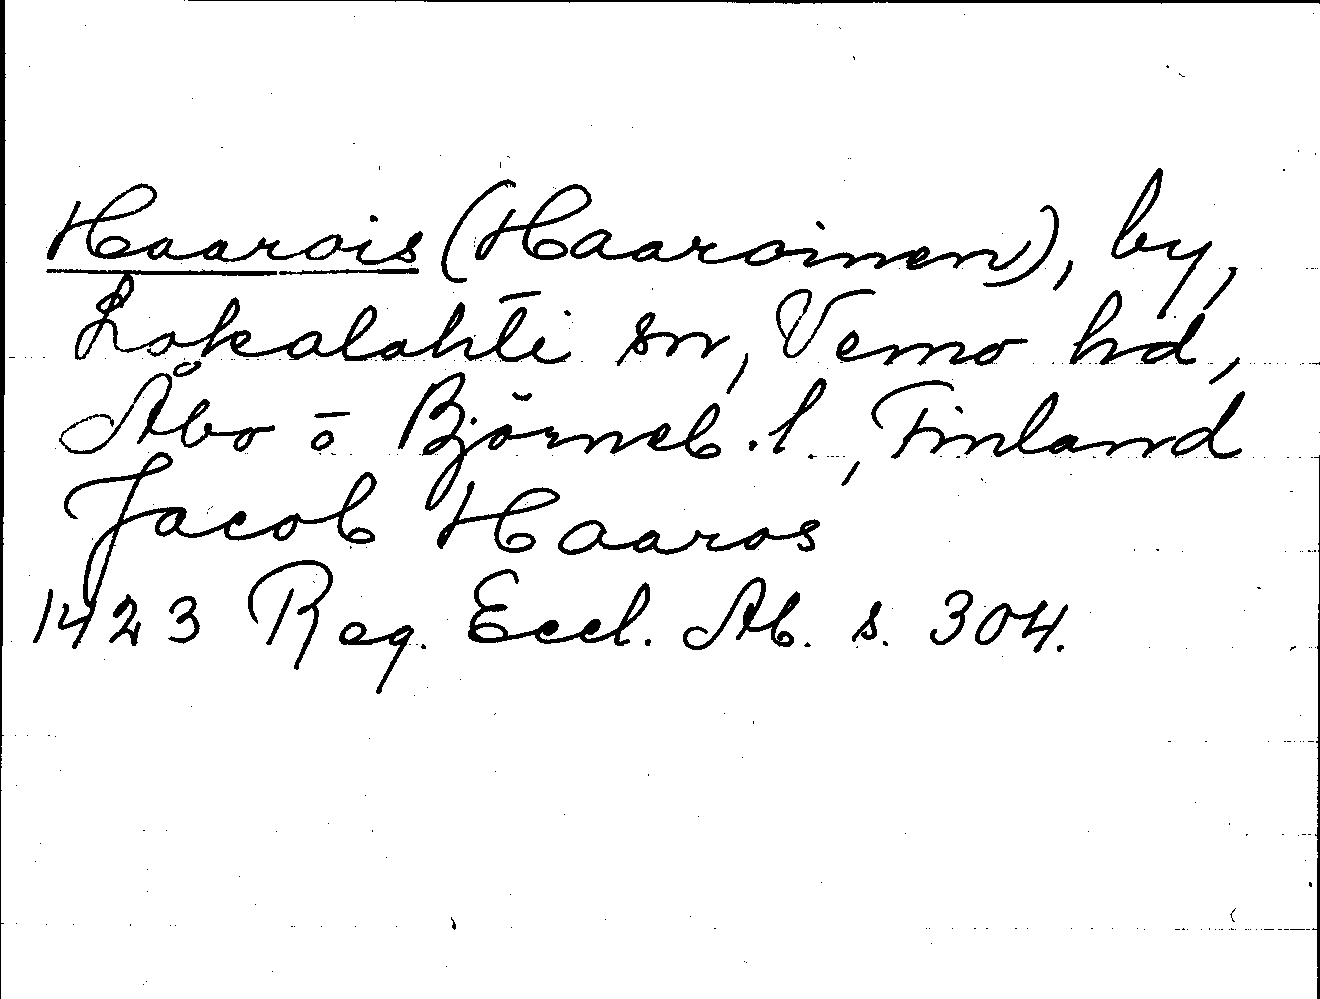 Haarois (Haaroinen), by,
Lokalahti sn, Vemo hd,
Åbo ō Björneb. l., Finland
Jacob Haaros
1423 Reg. Eccl. Ab. s. 304.